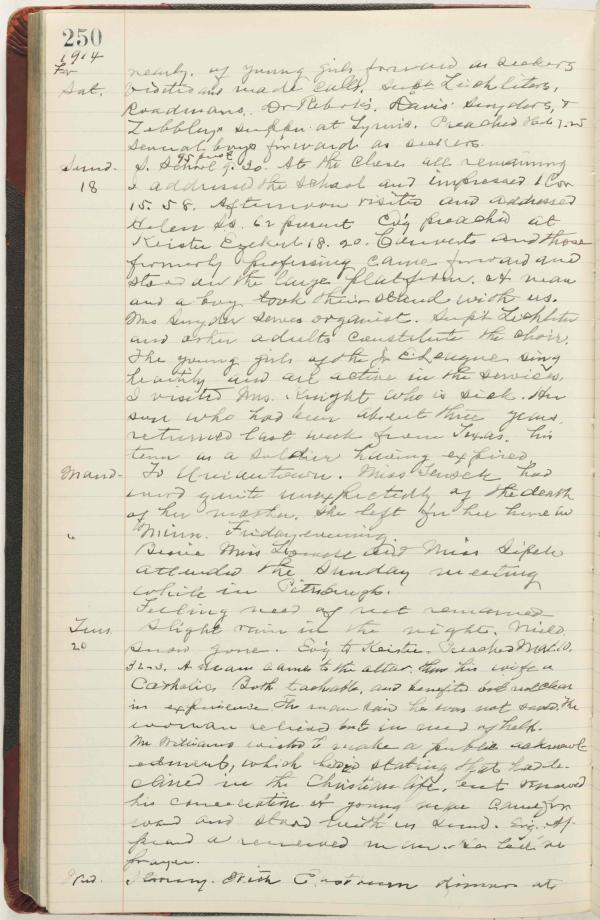 250
1914
nearly. of young girls forward as seekers
Sat. Visitations made calls. Supt Lichliters,
Roadmans, Dr Davis Snyders, &
supper at Preached
several boys forward as seekers.
Sund. S. School 9.30. 95 pres't At the close all remaining
18 I addressed the school and impressed 1 Cor
15.58. Afternoon visited and addressed
Helen SS. 62 present Ev'g preached at
Keister Ezekiel 18.20. Converts and those
formerly professing came forward and
stood on the large platform. A man
and a boy took their stand with us.
Mrs Snyder serves organist. Sup't Lichliter
and other adults constitute the choir.
The young girls of the Jr E League sing
heartily and are active in the services.
I visited Mrs. Knight who is sick. Her
son who had been absent three years,
returned last week from Texas, his
term as a soldier having expired
Mond. To Uniontown. Miss had
word quite unexpectedly of the death
of her mother. She left for her home in
Minn. Friday evening
Bessie Miss and Miss
attended the Sunday meeting
while in Pittsburgh.
Feeling need of rest remained
Tues. Slight rain in the night. Mild.
20 Snow gone. Ev'g to Keister. Preached Mat. 10.
32-3. A man came to the altar, then his wife a
Catholic. Both teachable, and benefited but not clear
in experience. The man said he was not saved. The
woman relieved but in need of help.
Mr Williams wished to make a public acknowl
edgment, which he did stating that had de
clined in the Christian life, but renewed
his consecration. A young man came for
ward and stood with us Sund. Ev'g.
a renewed man. He led in
prayer.
Wed. dinner at